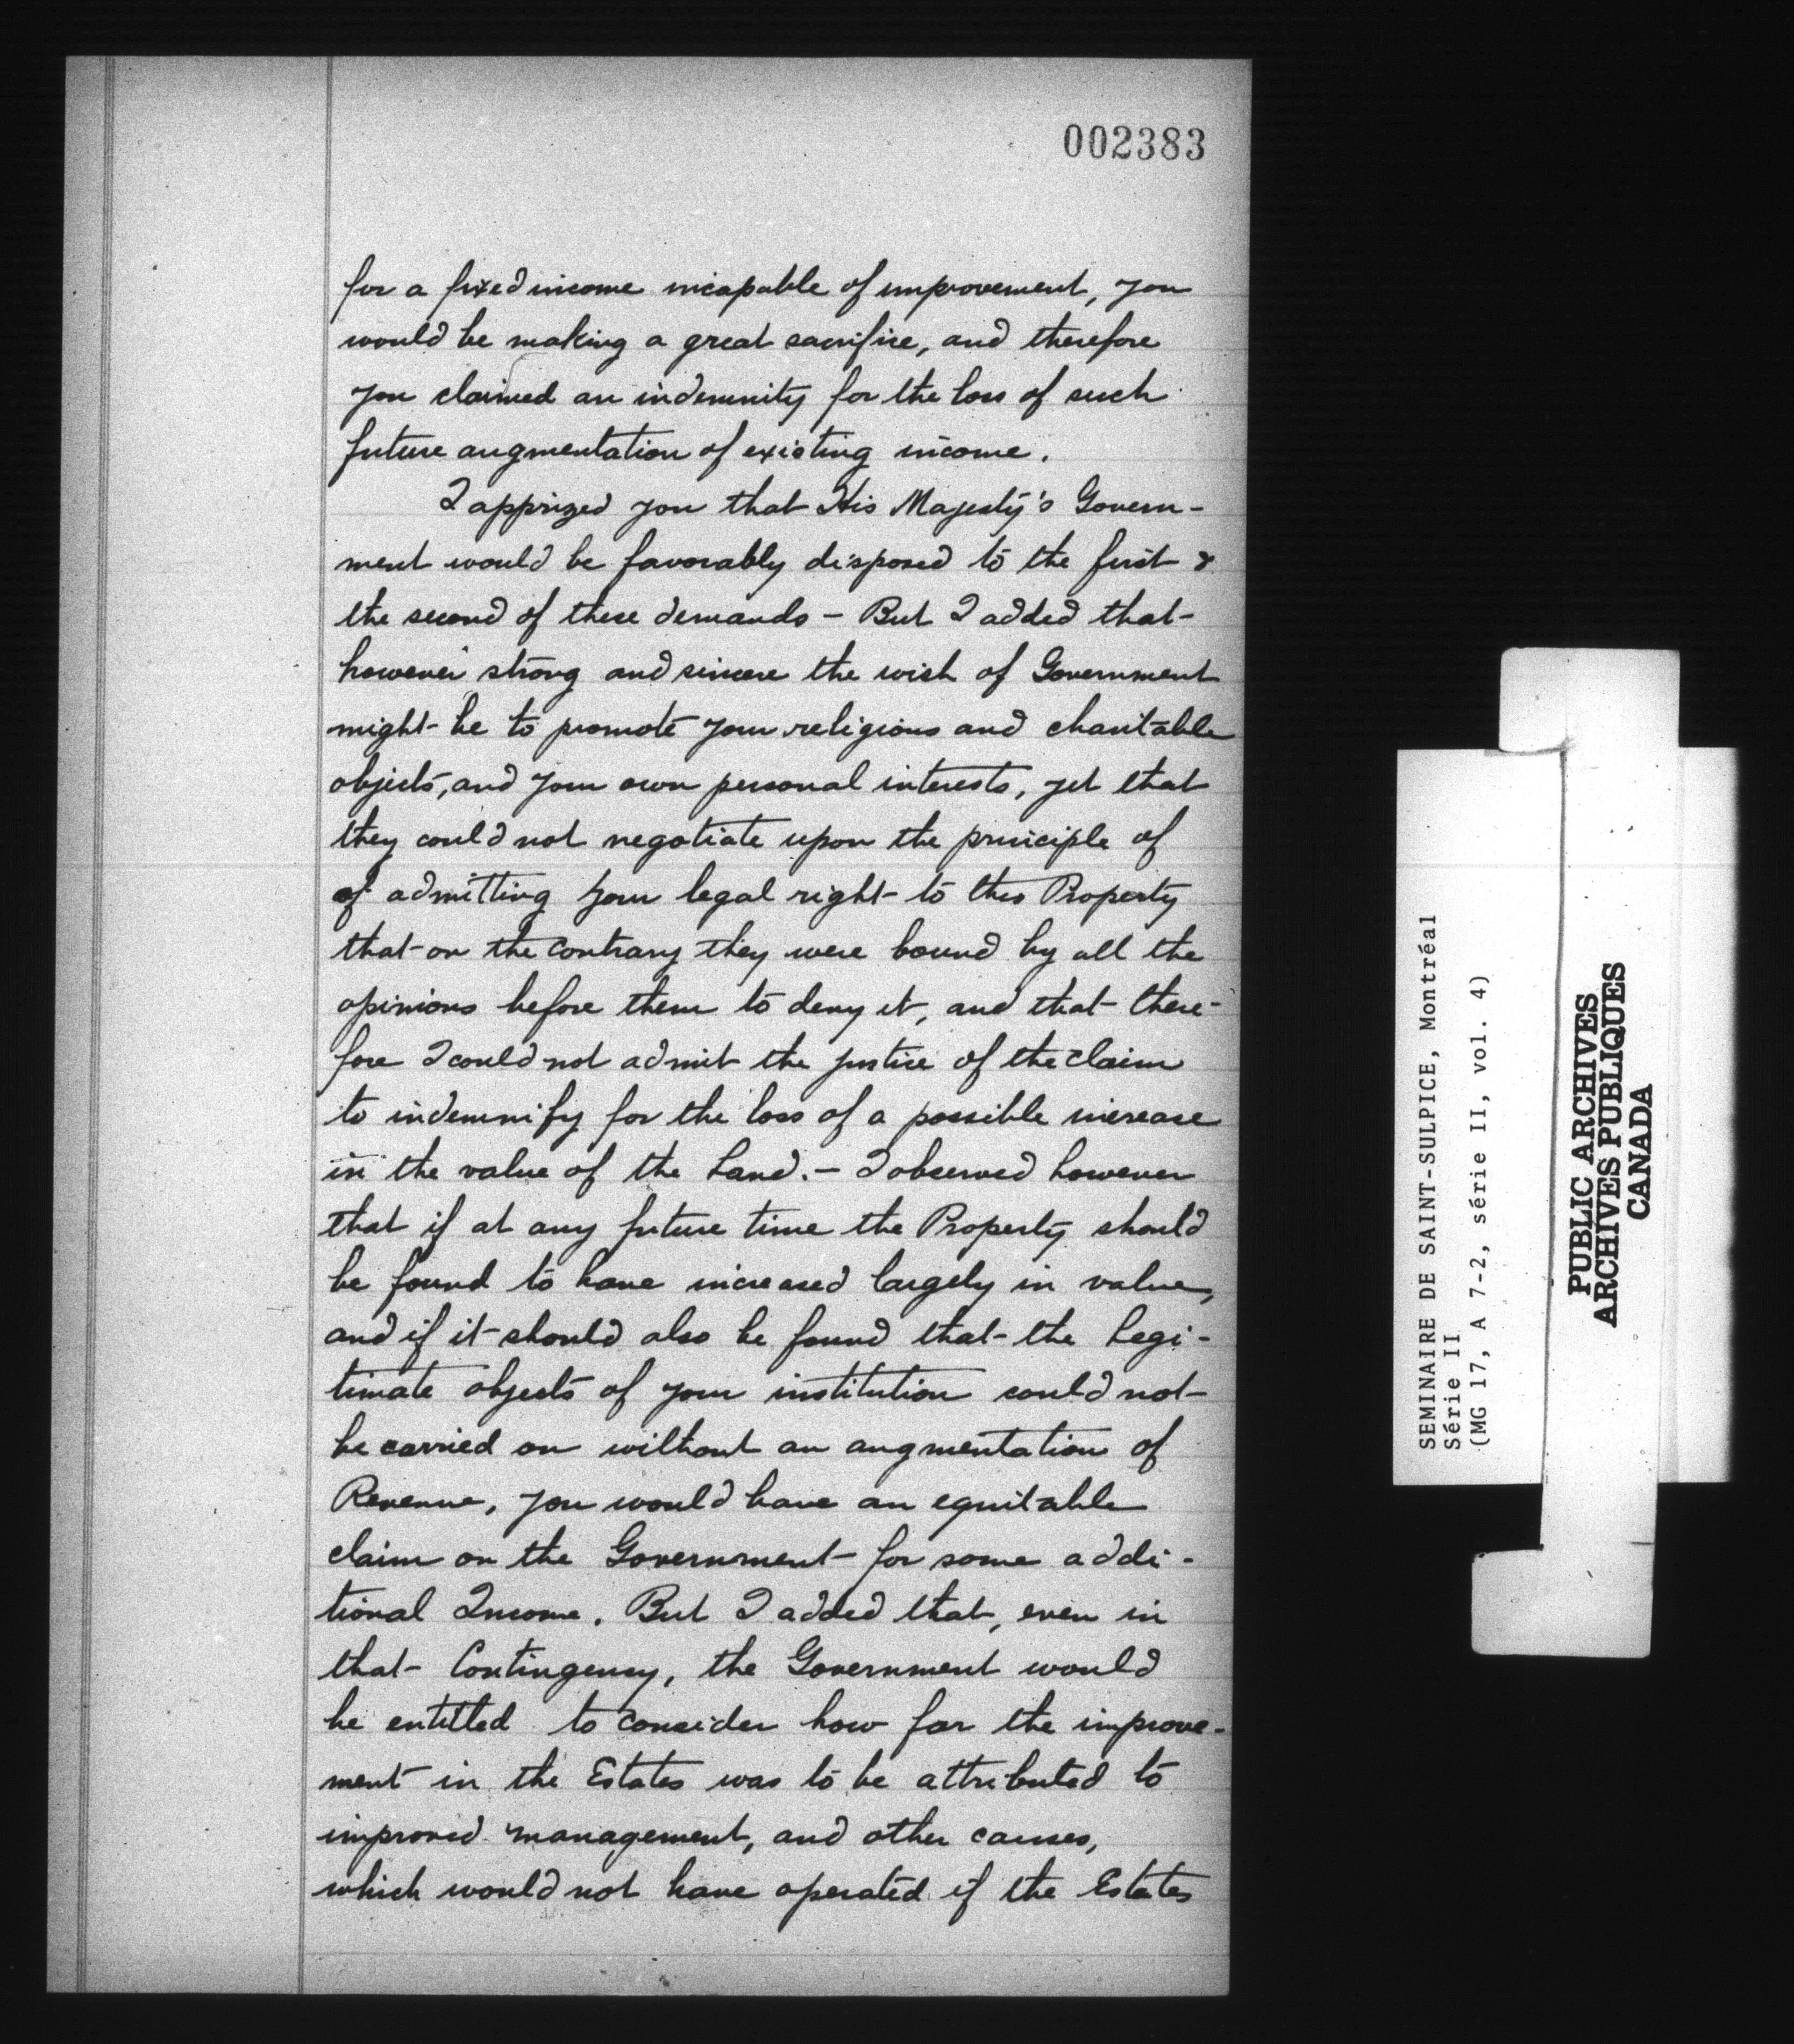 002383
for a fixed income incapable of improvement, you
would be making a great sacrifice, and therefore
you claimed an indemnity for the loss of such
future augmentation of existing income.
I apprized you that His Majesty's Govern-
ment would be favorably disposed to the first &
the second of these demands - But I added that
however strong and sincere the wish of Government
might be to promote your religious and charitable
objects, and your own personal interests, yet that
they could not negotiate upon the principle of
of admitting your legal right to this Property
that on the contrary they were bound by all the
opinions before them to deny it, and that there-
fore I could not admit the justice of the claim
to indemnify for the loss of a possible increase
in the value of the Land. - I observed however
that if at any future time the Property should
be found to have increased largely in value,
and if it should also be found that the Legi-
timate objects of your institution could not
be carried on without an augmentation of
Revenue, you would have an equitable
claim on the Government for some addi-
tional Income. But I added that, even in
that Contingency, the Government would
be entitled to consider how far the improve-
ment in the Estates was to be attributed to
improved management, and other causes,
which would not have operated if the Estates
SEMINAIRE DE SAINT-SULPICE, Montréal
Série II
(MG 17, A 7-2, série II, vol. 4)
PUBLIC ARCHIVES
ARCHIVES PUBLIQUES
CANADA